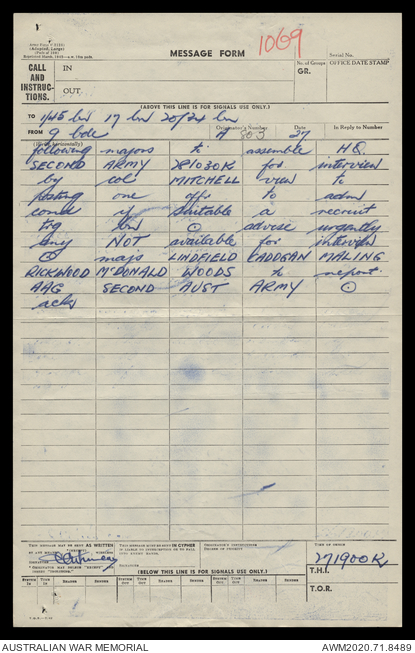 MESSAGE FORM
1069
Serial No.
CALL AND INSTRUC-TIONS.
IN
OUT
No. of Groups
GR.
OFFICE DATE STAMP
(ABOVE THIS LINE IS FOR SIGNALS USE ONLY.)
TO 1/45 bn 17 bn 20/34 bn
FROM 9 bde
Originator's Number A 803
Date 27
In Reply to Number
following majors to assemble HQ
SECOND ARMY 281030K for interview
by col MITCHELL view to
posting one offr to adm
comd if suitable a recruit
trg bn ⊙ advise urgently
any NOT available for interview
⊙ majs LINDFIELD CADOGAN MALING
RICKWOOD McDONALD WOODS to report
AAG SECOND AUST ARMY ⊙
ack
THIS MESSAGE MAY BE SENT AS WRITTEN
THIS MESSAGE MUST BE SENT IN CYPHER
TIME OF ORIGIN
271900K
T.H.I.
(BELOW THIS LINE IS FOR SIGNALS USE ONLY.)
T.O.R.
AUSTRALIAN WAR MEMORIAL
AWM2020.71.8489